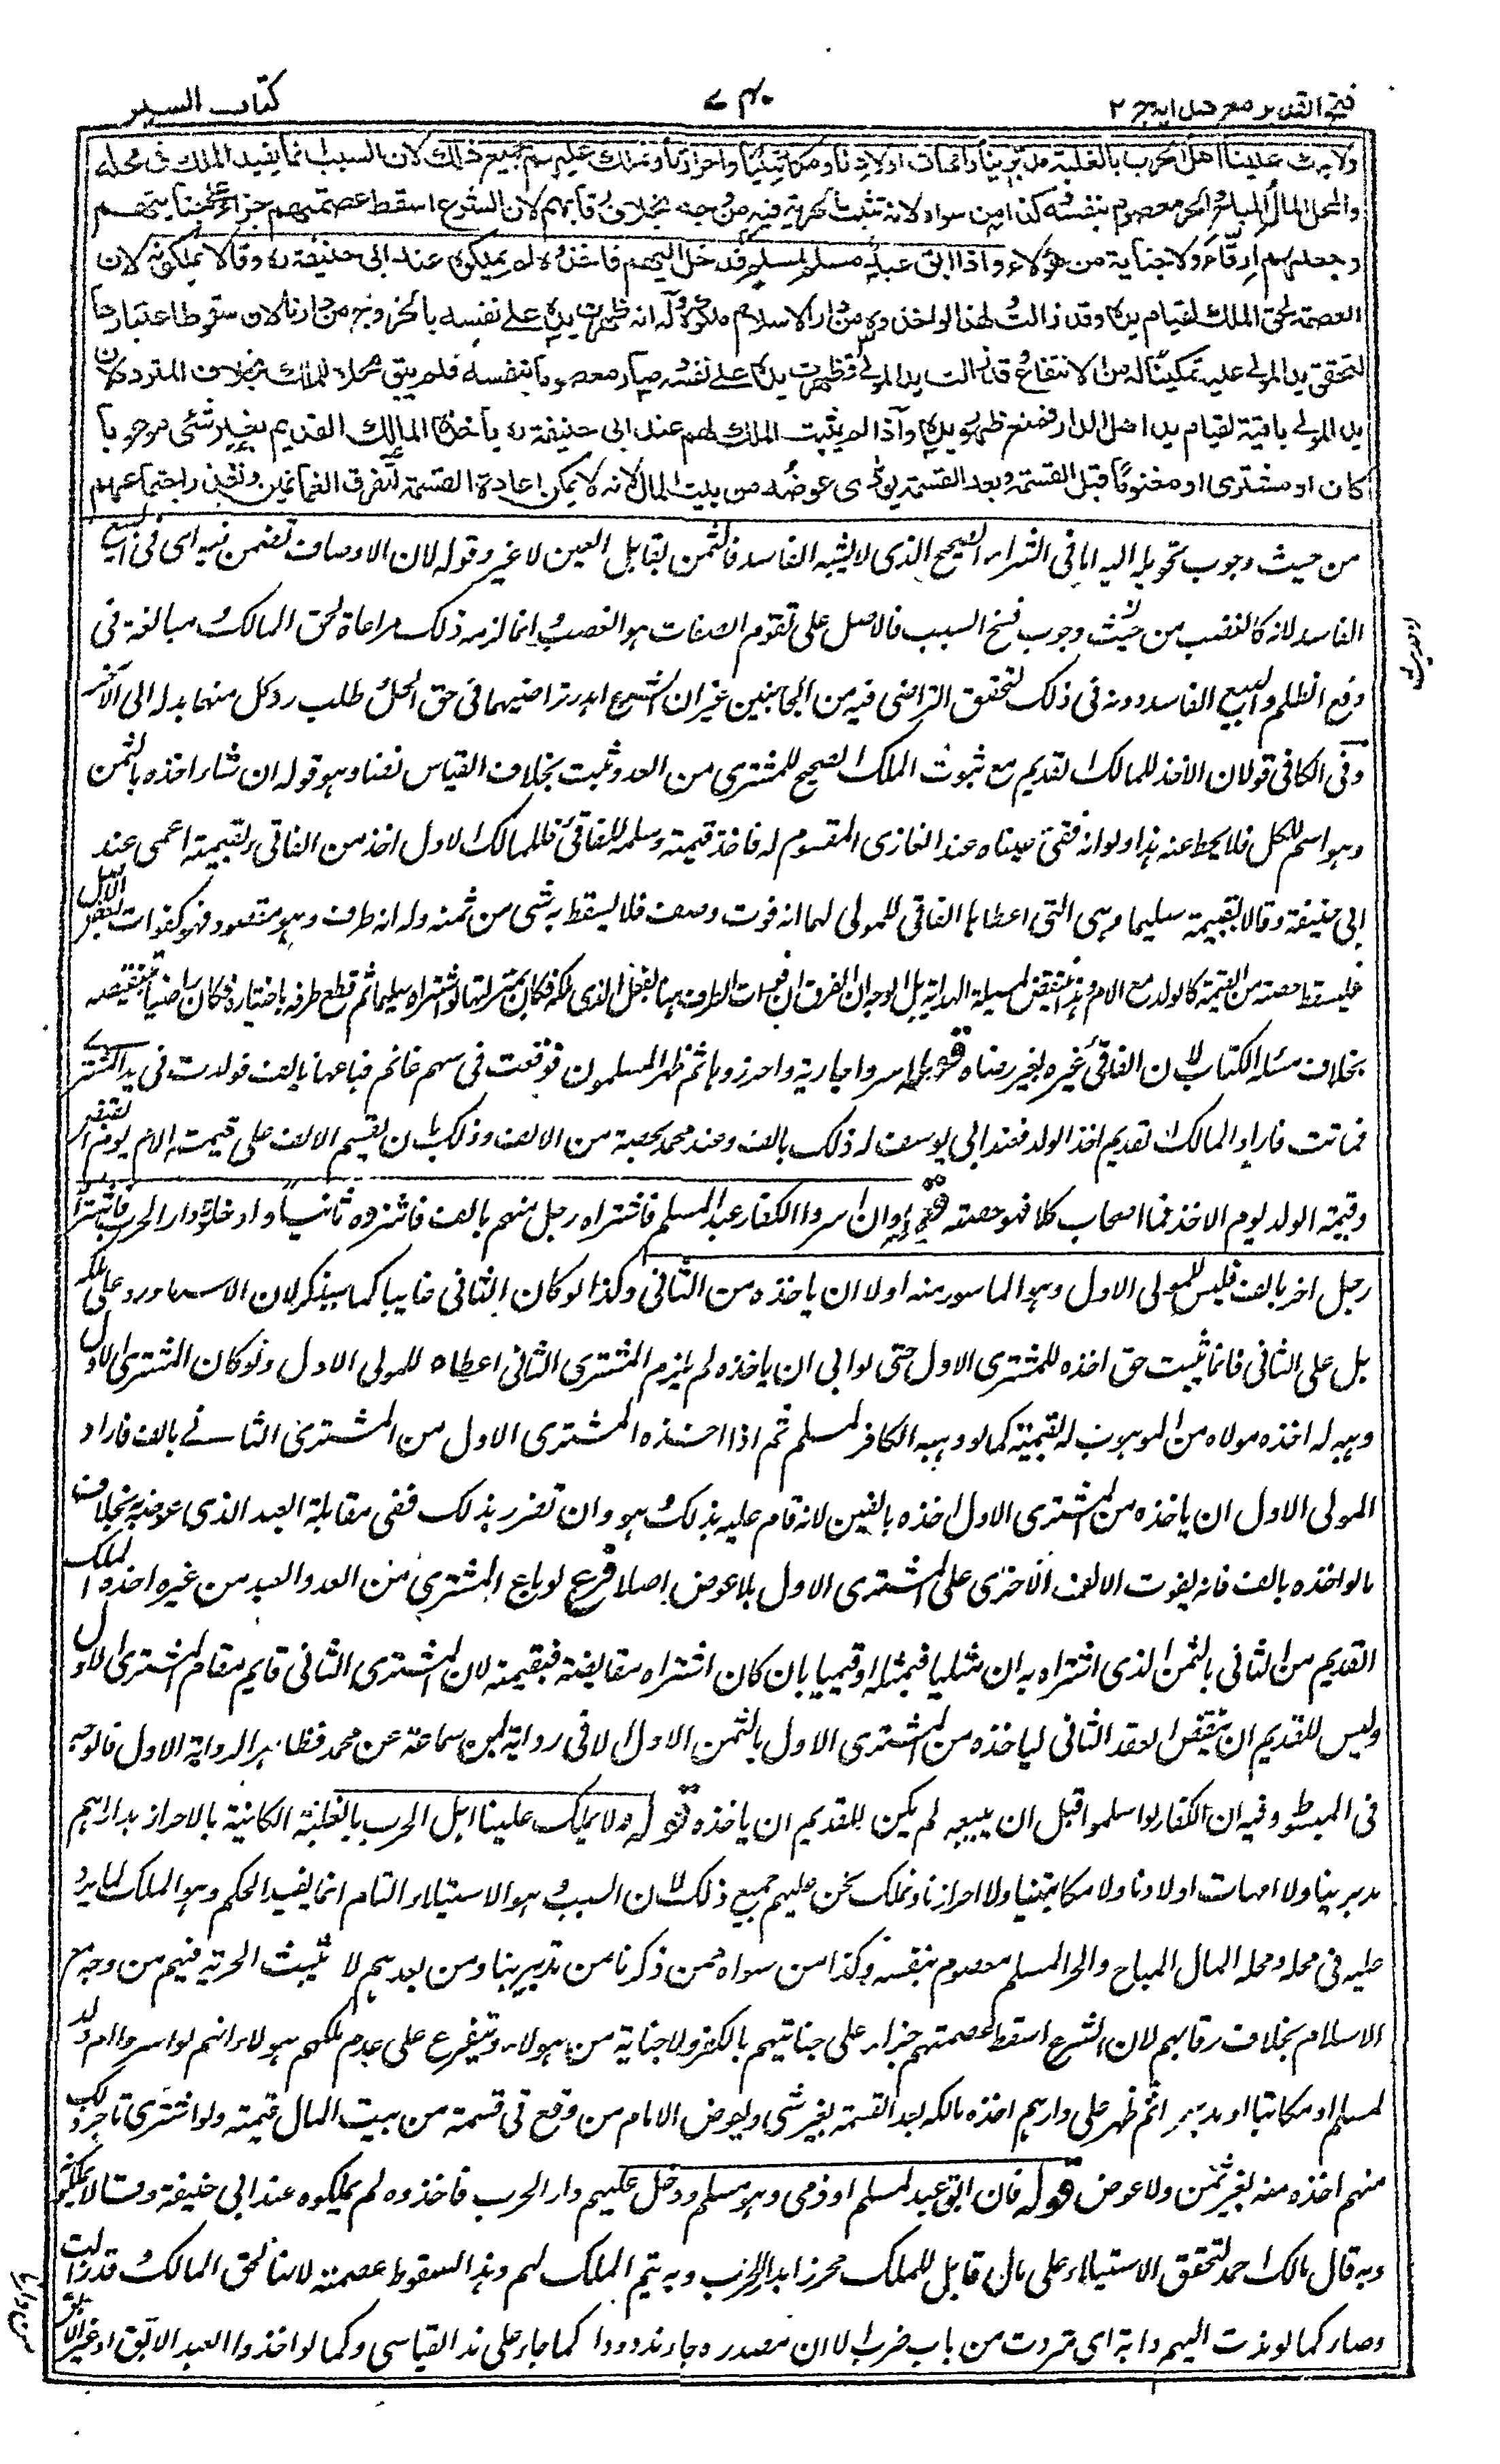 فتح القدير مع هدايه ج ٢
٧٤٠
كتاب السير
ولا يملك علينا اهل الحرب بالغلبة مدبرينا وامهات اولادنا ومكاتبينا واحرارنا ونملك عليهم جميع ذلك لان السبب انما يفيد الملك في محله
والمحل المال المباح والحر معصوم بنفسه كذا من سواه لانه تثبت الحرية فيه من وجه بخلاف رقابهم لان الشرع اسقط عصمتهم جزاء على جنايتهم
وجعلهم ارقاء ولا جناية من هؤلاء واذا ابق عبد مسلم لمسلم فدخل اليهم فاخذوه لم يملكوه عند ابى حنيفة ره وقالا يملكونه لان
العصمة لحق الملك لقيام يده وقد زالت لهذا لو اخذوه من دار الاسلام ملكوه وله انه ظهرت يده على نفسه بالخروج من دارنا لان سقوط اعتبارها
لتحقق يد المولى عليه تمكينا له من الانتفاع وقد زالت يد المولى فظهرت يده على نفسه وصار معصوما بنفسه فلم يبق محلا للملك بخلاف المتردد لان
يد المولى باقية لقيام يد اهل الدار فمنع ظهور يده واذا لم يثبت الملك لهم عند ابى حنيفة ره يأخذه المالك القديم بغير شئ موهوبا
كان او مشترى او مغنوما قبل القسمة وبعد القسمة يؤدى عوضه من بيت المال لانه لا يمكن اعادة القسمة لتفرق الغانمين وتعذر اجتماعهم
من حيث وجوب تحويله اليه اما في الشراء الصحيح الذي لا يشبه الفاسد فالثمن يقابل العين لا غير وقوله لان الاوصاف تضمن فيه اى في البيع
الفاسد لانه كالغصب من حيث وجوب فسخ السبب فالاصل على تقوم الصفات هو الغصب انما لزمه ذلك مراعاة لحق المالك مبالغة في
دفع الظلم والبيع الفاسد دونه في ذلك لتحقق التراضى فيه من الجانبين غير ان الشرع اهدر تراضيهما في حق الحل وطلب رد كل منهما بدله الى الآخر
وفى الكافى قولان الاخذ للمالك القديم مع ثبوت الملك الصحيح للمشترى من العدو ثبت بخلاف القياس نصا وهو قوله ان شاء اخذه بالثمن
وهو اسم للكل فلا يحط عنه هذا ولو انه فقئ عيناه عند الغازى المقسوم له فاخذ قيمته وسلمه للفاقئ فللمالك الاول اخذ من الفاقى بقيمته اعمى عند
ابى حنيفة وقالا بقيمته سليما وهى التى اعطاها الفاقى للمولى لهما انه فوت وصف فلا يسقط به شى من ثمنه وله انه طرف وهو مقصود فهو كفوات بعض الاصل
فيسقط حصته من القيمة كالولد مع الام وهذا ينقض لمسئلة الهداية بل الوجه ان الفرق ان فوات الطرف هنا بفعل الذى ملكه فكان بمنزلة ما لو اشتراه سليما ثم قطع طرفه باختياره فكان راضيا بتنقيصه
بخلاف مسئلة الكتاب لان الفاقئ غيره بغير رضاه اسروا جارية واحرزوها ثم ظهر المسلمون فوقعت في سهم غانم فباعها بالف فولدت في يد المشترى
فماتت فاراد المالك القديم اخذ الولد فعند ابى يوسف له ذلك بالف وعند محمد بحصته من الالف وذلك بان يقسم الالف على قيمة الام يوم القبض
وقيمة الولد يوم الاخذ فما اصاب كلا فهو حصته قوله وان اسروا الكفار عبد المسلم فاشتراه رجل منهم بالف فاسروه ثانيا وادخلوه دار الحرب فاشتراه
رجل آخر بالف فليس للمولى الاول وهو الماسور منه اولا ان ياخذه من الثانى وكذا لو كان الثانى غايبا كما سيذكر لان الاسر ما ورد على ملكه
بل على الثانى فانما يثبت حق اخذه للمشترى الاول حتى لو ابى ان ياخذه لم يلزم المشترى الثانى اعطاه للمولى الاول ولو كان المشترى الاول
وهبه له اخذه مولاه من الموهوب له بقيمته كما لو وهبه الكافر لمسلم ثم اذا اخذه المشترى الاول من المشترى الثانى بالف فاراد
المولى الاول ان ياخذه من المشترى الاول اخذه بالفين لانه قام عليه بذلك هو وان تضرر بذلك ففى مقابلة العبد الذى عوضه بخلاف
ما لو اخذه بالف فانه يفوت الالف الاخرى على المشترى الاول بلا عوض اصلا فرع لو باع المشترى من العدو العبد من غيره اخذه المالك
القديم من الثانى بالثمن الذى اشتراه به ان مثليا فبمثله او قيميا بان كان اشتراه مقايضة فبقيمته لان المشترى الثانى قايم مقام المشترى الاول
وليس للقديم ان ينقض العقد الثانى لياخذه من المشترى الاول بالثمن الاول الا فى رواية ابن سماعة عن محمد فظاهر الرواية الاول فالوجه
فى المبسوط وفيه ان الكفار لو اسلموا قبل ان يبيعه لم يكن للقديم ان ياخذه قوله ولا يملك علينا اهل الحرب بالغلبة الكائنة بالاحراز بدارهم
مدبرينا ولا امهات اولادنا ولا مكاتبينا ولا احرارنا ونملك نحن عليهم جميع ذلك لان السبب هو الاستيلاء التام انما يفيد الحكم وهو الملك لما يرد
عليه فى محله ومحله المال المباح والحر المسلم معصوم بنفسه وكذا من سواه ممن ذكرنا من مدبرينا ومن بعدهم لا تثبت الحرية فيهم من وجه مع
الاسلام بخلاف رقابهم لان الشرع اسقط عصمتهم جزاء على جنايتهم بالكفر ولا جناية من هولاء ويتفرع على عدم ملكهم هولاء انهم لو اسروا ام ولد
لمسلم او مكاتبا او مدبرا ثم ظهر على دارهم اخذه مالكه بعد القسمة بغير شى ويعوض الامام من وقع فى قسمة من بيت المال قيمته ولو اشترى تاجر ذلك
منهم اخذه منه بغير ثمن ولا عوض قوله فان ابق عبد لمسلم او ذمى وهو مسلم ودخل عليهم دار الحرب فاخذوه لم يملكوه عند ابى حنيفة وقالا يملكونه
وبه قال مالك احمد لتحقق الاستيلاء على مال قابل للملك محرزا بدار الحرب وبه يتم الملك لهم وهذا لسقوط عصمته لانها لحق المالك وقد زالت
وصار كما لو ندت اليهم دابة اى تردت من باب ضرب الا ان مصدره جاء ندودا كما جاء على ند القياسى وكما لو اخذوا العبد الآبق او غير الآبق